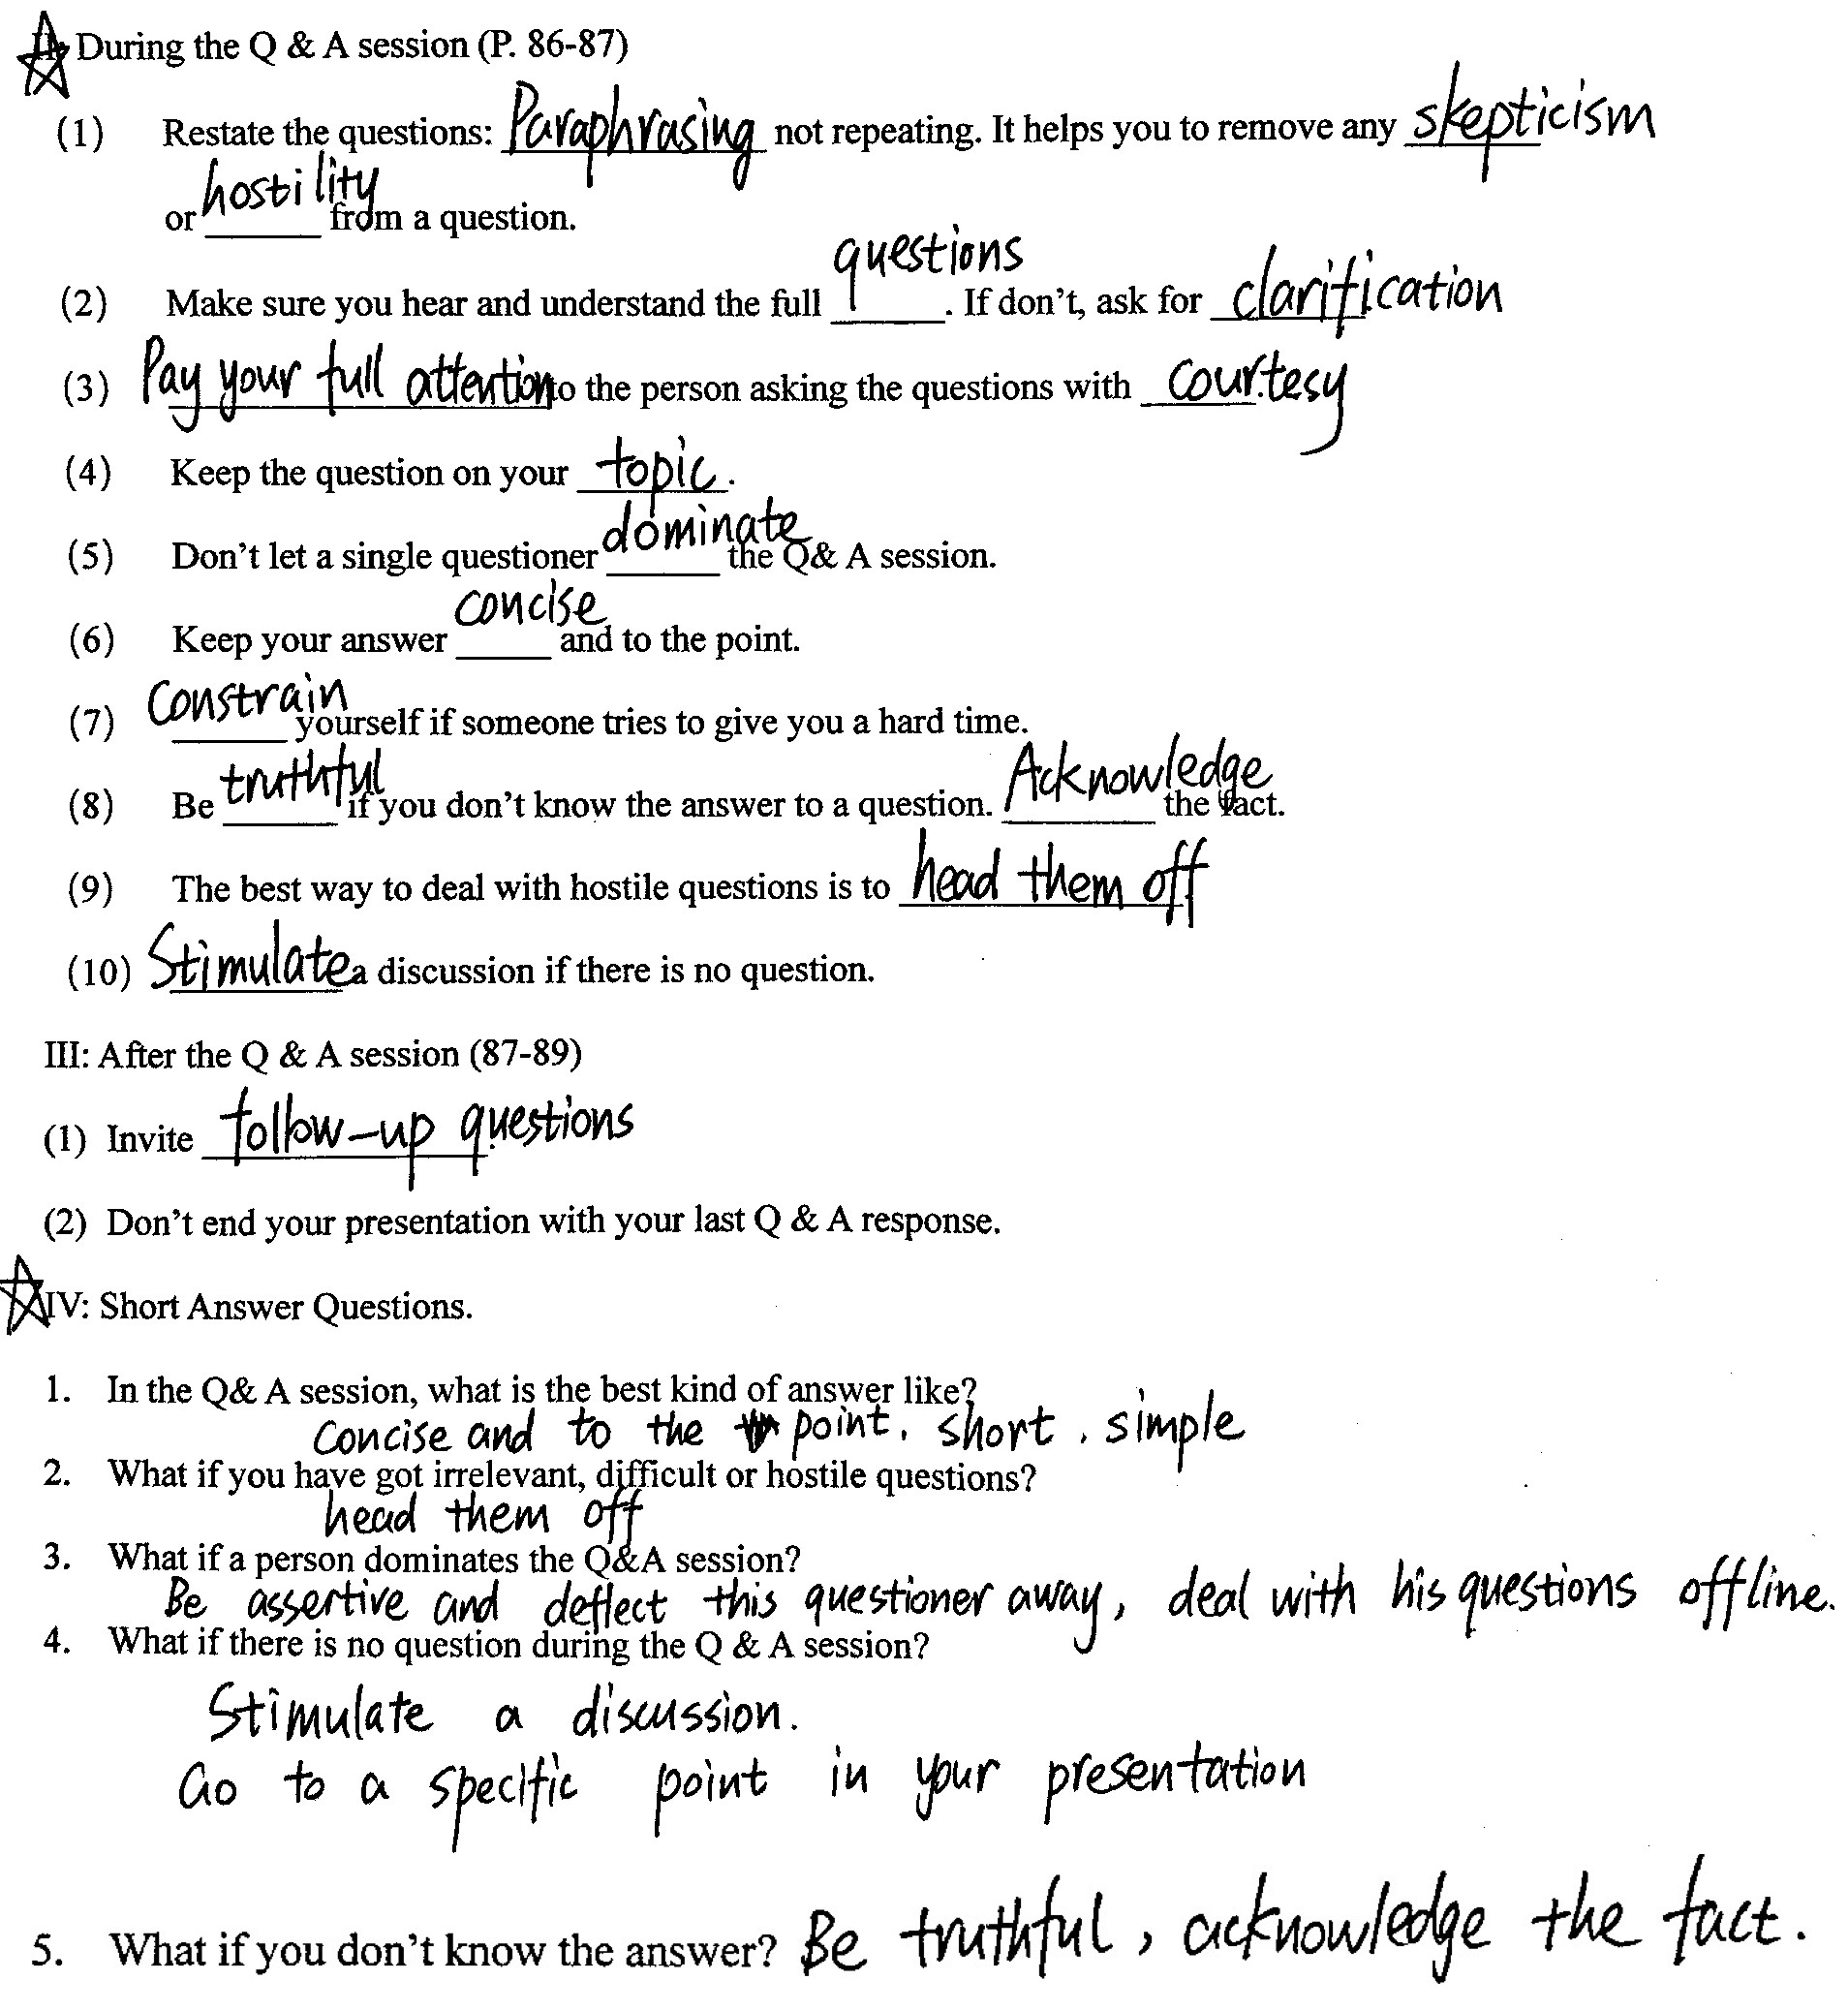 II: During the Q & A session (P. 86-87)
(1) Restate the questions: Paraphrasing not repeating. It helps you to remove any skepticism
or hostility from a question.
(2) Make sure you hear and understand the full questions. If don't, ask for clarification
(3) Pay your full attention to the person asking the questions with courtesy.
(4) Keep the question on your topic.
(5) Don't let a single questioner dominate the Q& A session.
(6) Keep your answer concise and to the point.
(7) Constrain yourself if someone tries to give you a hard time.
(8) Be truthful if you don't know the answer to a question. Acknowledge the fact.
(9) The best way to deal with hostile questions is to head them off
(10) Stimulate a discussion if there is no question.
III: After the Q & A session (87-89)
(1) Invite follow-up questions
(2) Don't end your presentation with your last Q & A response.
IV: Short Answer Questions.
1. In the Q& A session, what is the best kind of answer like?
Concise and to the point, short, simple
2. What if you have got irrelevant, difficult or hostile questions?
head them off
3. What if a person dominates the Q&A session?
Be assertive and deflect this questioner away, deal with his questions offline.
4. What if there is no question during the Q & A session?
Stimulate a discussion.
Go to a specific point in your presentation
5. What if you don't know the answer? Be truthful, acknowledge the fact.